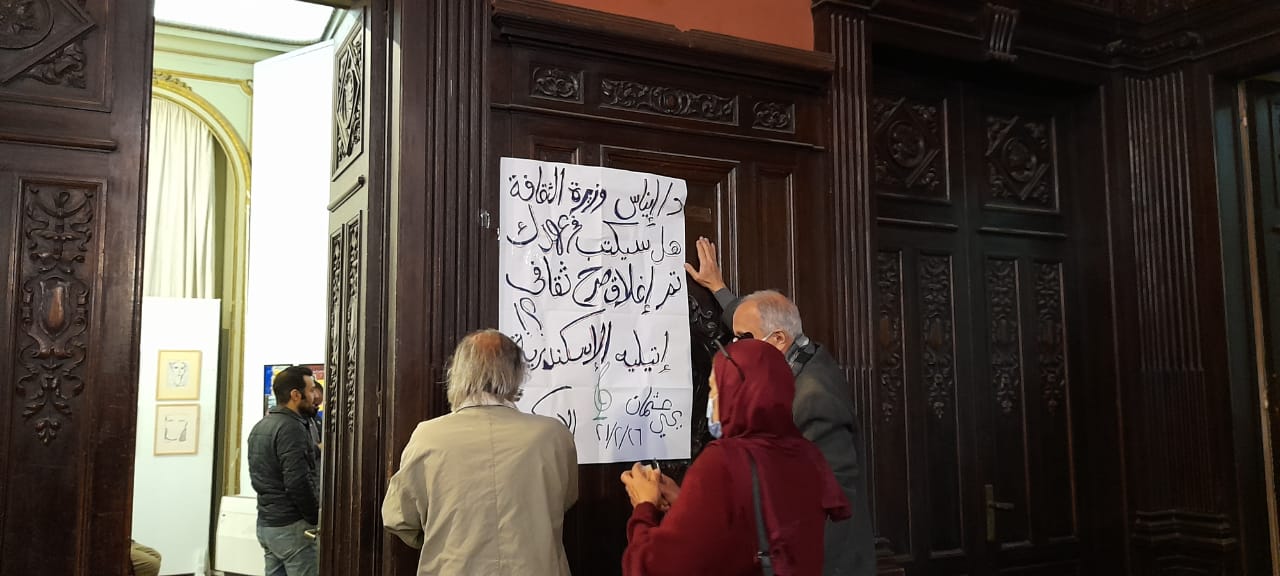 د/ إيناس وزيرة الثقافة
هل سيكتب في عهدك
تم إغلاق صرح ثقافي
إتيليه الإسكندرية ؟!
عثمان
يحيى
٢١/٢/٢٦